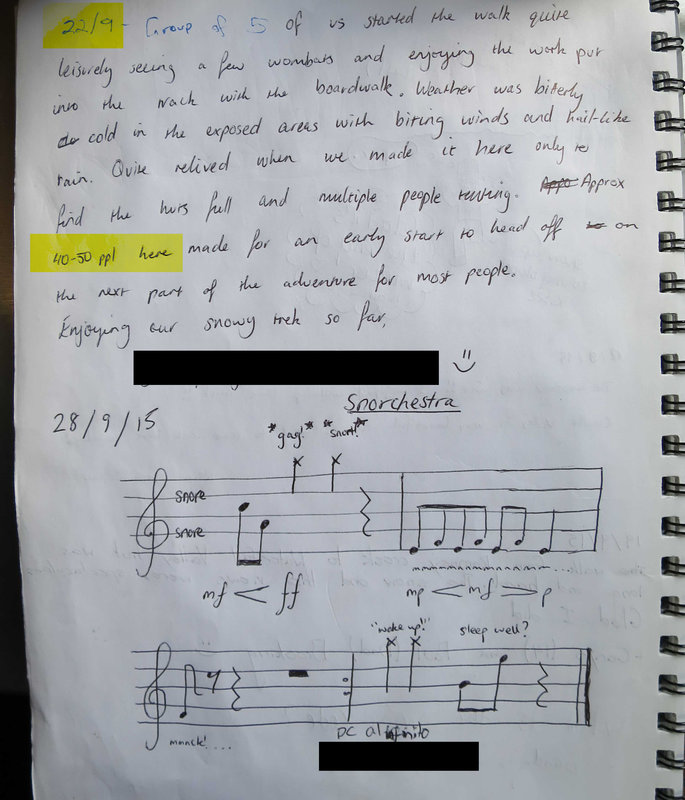 22/9 - Group of 5 of us started the walk quite
leisurely seeing a few wombats and enjoying the work put
into the track with the boardwalk. Weather was bitterly
cold in the exposed areas with biting winds and hail-like
rain. Quite relived when we made it here only to
find the huts full and multiple people tenting. Approx
40-50 ppl here made for an early start to head off on
the next part of the adventure for most people.
Enjoying our snowy trek so far,
28/9/15
Snorchestra
*gag!* *snort!*
snore
snore
mmmmmmmmmmmmm...
mf < ff
mp < mf > p
"wake up!"
sleep well?
mnnck!....
DC al infinito